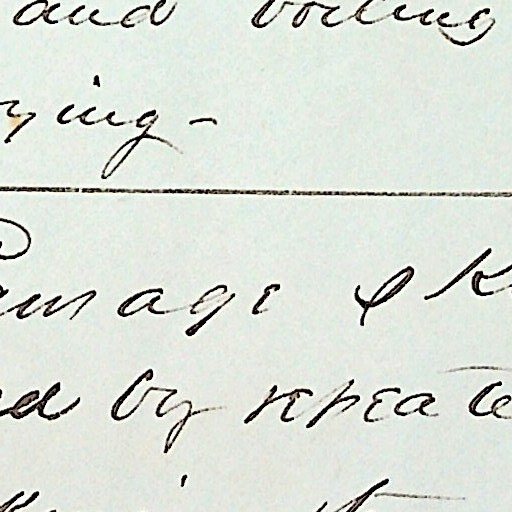 and boiling
ying -
amage & K
ed by repeate